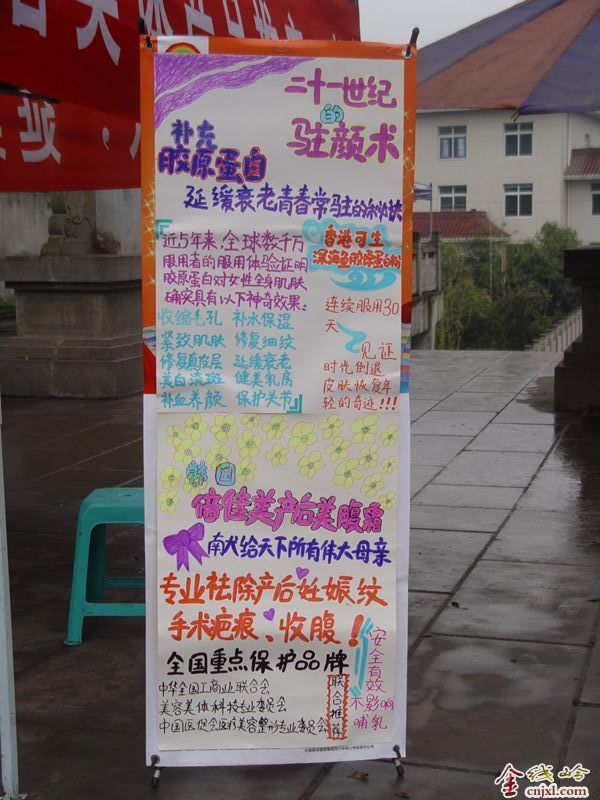 二十一世纪
的
驻颜术
补充
胶原蛋白
延缓衰老青春常驻的秘诀
近5年来,全球数千万
服用者的服用体验证明
胶原蛋白对女性全身肌肤
确实具有以下神奇效果:
收缩毛孔 补水保湿
紧致肌肤 修复细纹
修复真皮层 延缓衰老
美白淡斑 健美乳房
补血养颜 保护关节
香港可生
深海鱼胶原蛋白粉
连续服用30
天
见证
时光倒退
皮肤恢复年
轻的奇迹!!!
韩国
倍佳美产后美腹霜
献给天下所有伟大母亲
专业祛除产后妊娠纹
手术疤痕、收腹!
全国重点保护品牌
中华全国工商业联合会
美容美体科技专业委员会
中国医促会医疗美容整形专业委员会
联合推荐
安全有效
不影响
哺乳
金线岭
cnjxl.com